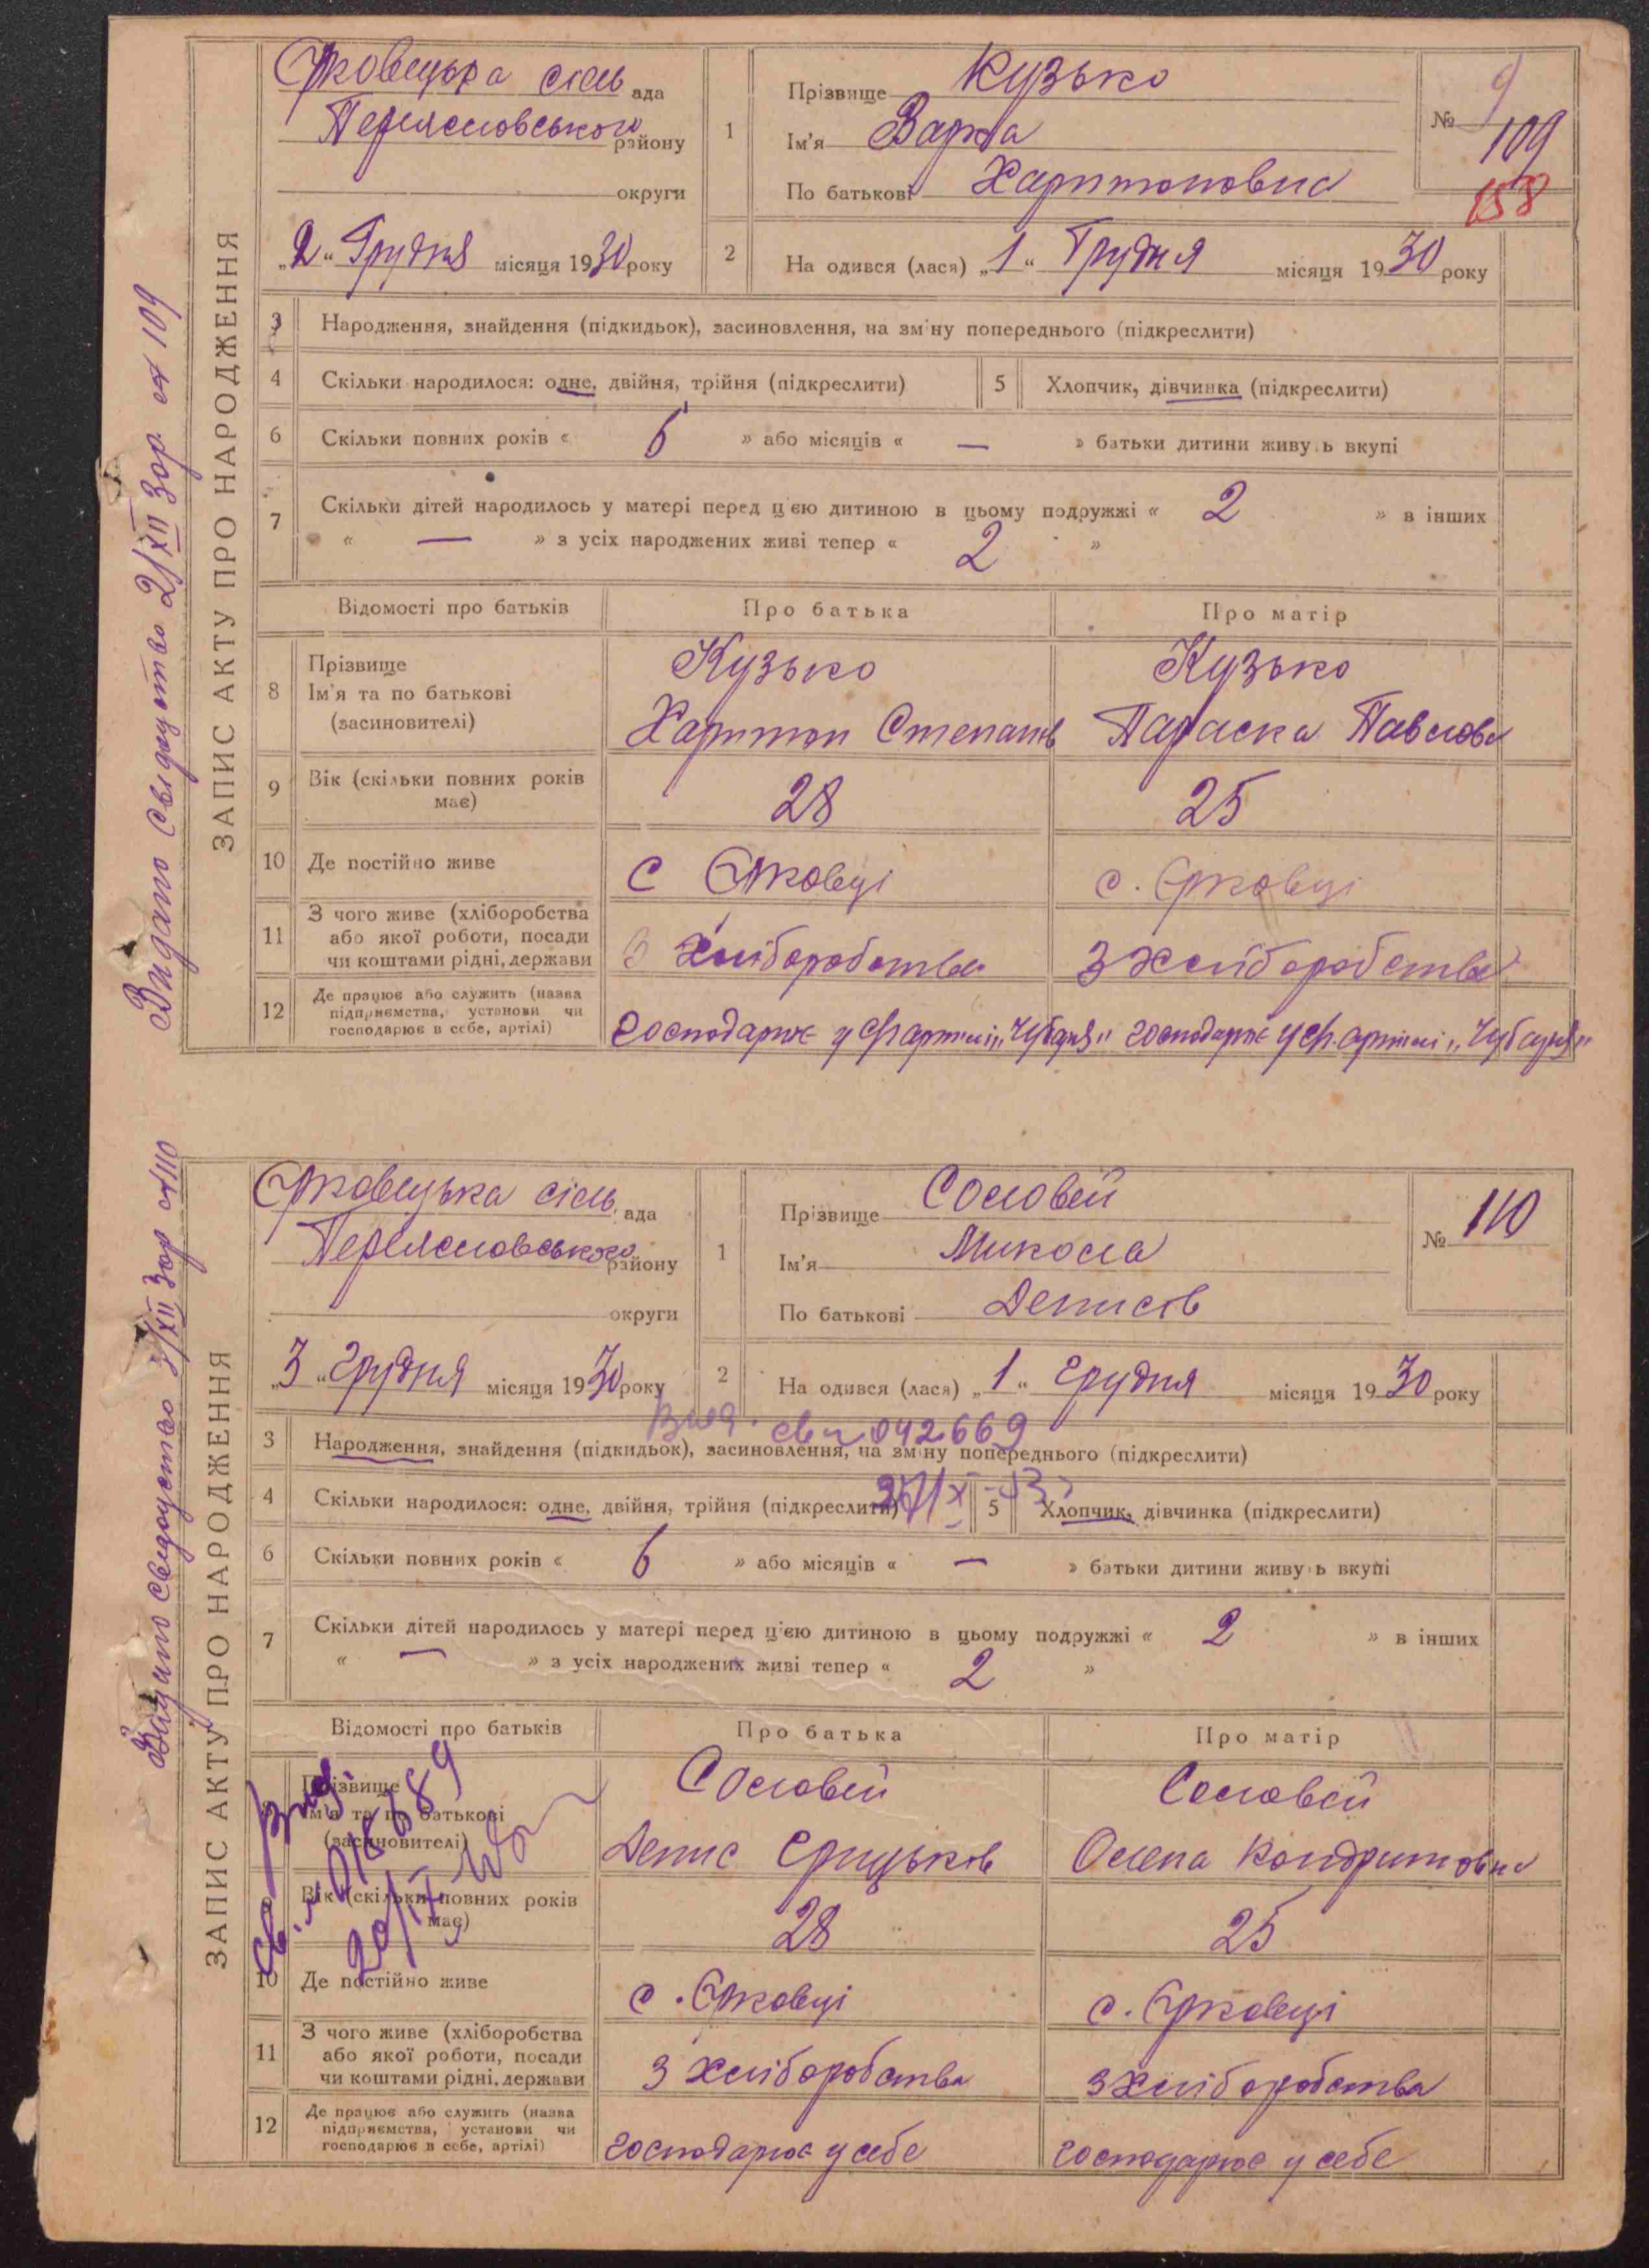 Єрковецька сіль ада
Переяславського району
округи
„2“ Грудня місяця 1930 року
1 Прізвище Кузько
Ім'я Варка
По батькові Харитоновна
№ 9
109
158
2 На одився (лася) „1“ Грудня місяця 1930 року
ЗАПИС АКТУ ПРО НАРОДЖЕННЯ
Видано Свідоцтво 2/XII 30р. № 109
3 Народження, знайдення (підкидьок), засиновлення, на зміну попереднього (підкреслити)
4 Скільки народилося: одне, двійня, трійня (підкреслити) 5 Хлопчик, дівчинка (підкреслити)
6 Скільки повних років « 6 » або місяців « — » батьки дитини живу ь вкупі
7 Скільки дітей народилось у матері перед цією дитиною в цьому подружжі « 2 » в інших
« — » з усіх народжених живі тепер « 2 »
Відомості про батьків Про батька Про матір
8 Прізвище Кузько Кузько
Ім'я та по батькові
(засиновителі) Харитон Степанів Параска Павлова
9 Вік (скільки повних років
має) 28 25
10 Де постійно живе с Єрковці с. Єрковці
11 З чого живе (хліборобства
або якої роботи, посади
чи коштами рідні, держави З хліборобства З хліборобства
12 Де працює або служить (назва
підприємства, установи чи
господарює в себе, артілі) господарює у с/г артілі „Чубаря“ господарює у с/г. артілі „Чубаря“
Єрковецька сіль ада
Переяславського району
округи
„3“ Грудня місяця 1930 року
1 Прізвище Соловей
Ім'я Микола
По батькові Денисів
№ 110
2 На одився (лася) „1“ Грудня місяця 1930 року
ЗАПИС АКТУ ПРО НАРОДЖЕННЯ
Видано свідоцтво 3/XII 30р №110
Вид. св № 042669
3 Народження, знайдення (підкидьок), засиновлення, на зміну попереднього (підкреслити)
4 Скільки народилося: одне, двійня, трійня (підкреслити) 5 Хлопчик, дівчинка (підкреслити)
6 Скільки повних років « 6 » або місяців « — » батьки дитини живу ь вкупі
7 Скільки дітей народилось у матері перед цією дитиною в цьому подружжі « 2 » в інших
« — » з усіх народжених живі тепер « 2 »
Відомості про батьків Про батька Про матір
Прізвище Соловей Соловей
Ім'я та по батькові
(засиновителі) Денис Грицьків Олена Кондритовна
9 Вік (скільки повних років
має) 28 25
10 Де постійно живе с. Єрковці с. Єрковці
11 З чого живе (хліборобства
або якої роботи, посади
чи коштами рідні, держави З хліборобства З хліборобства
12 Де працює або служить (назва
підприємства, установи чи
господарює в себе, артілі) господарює у себе господарює у себе